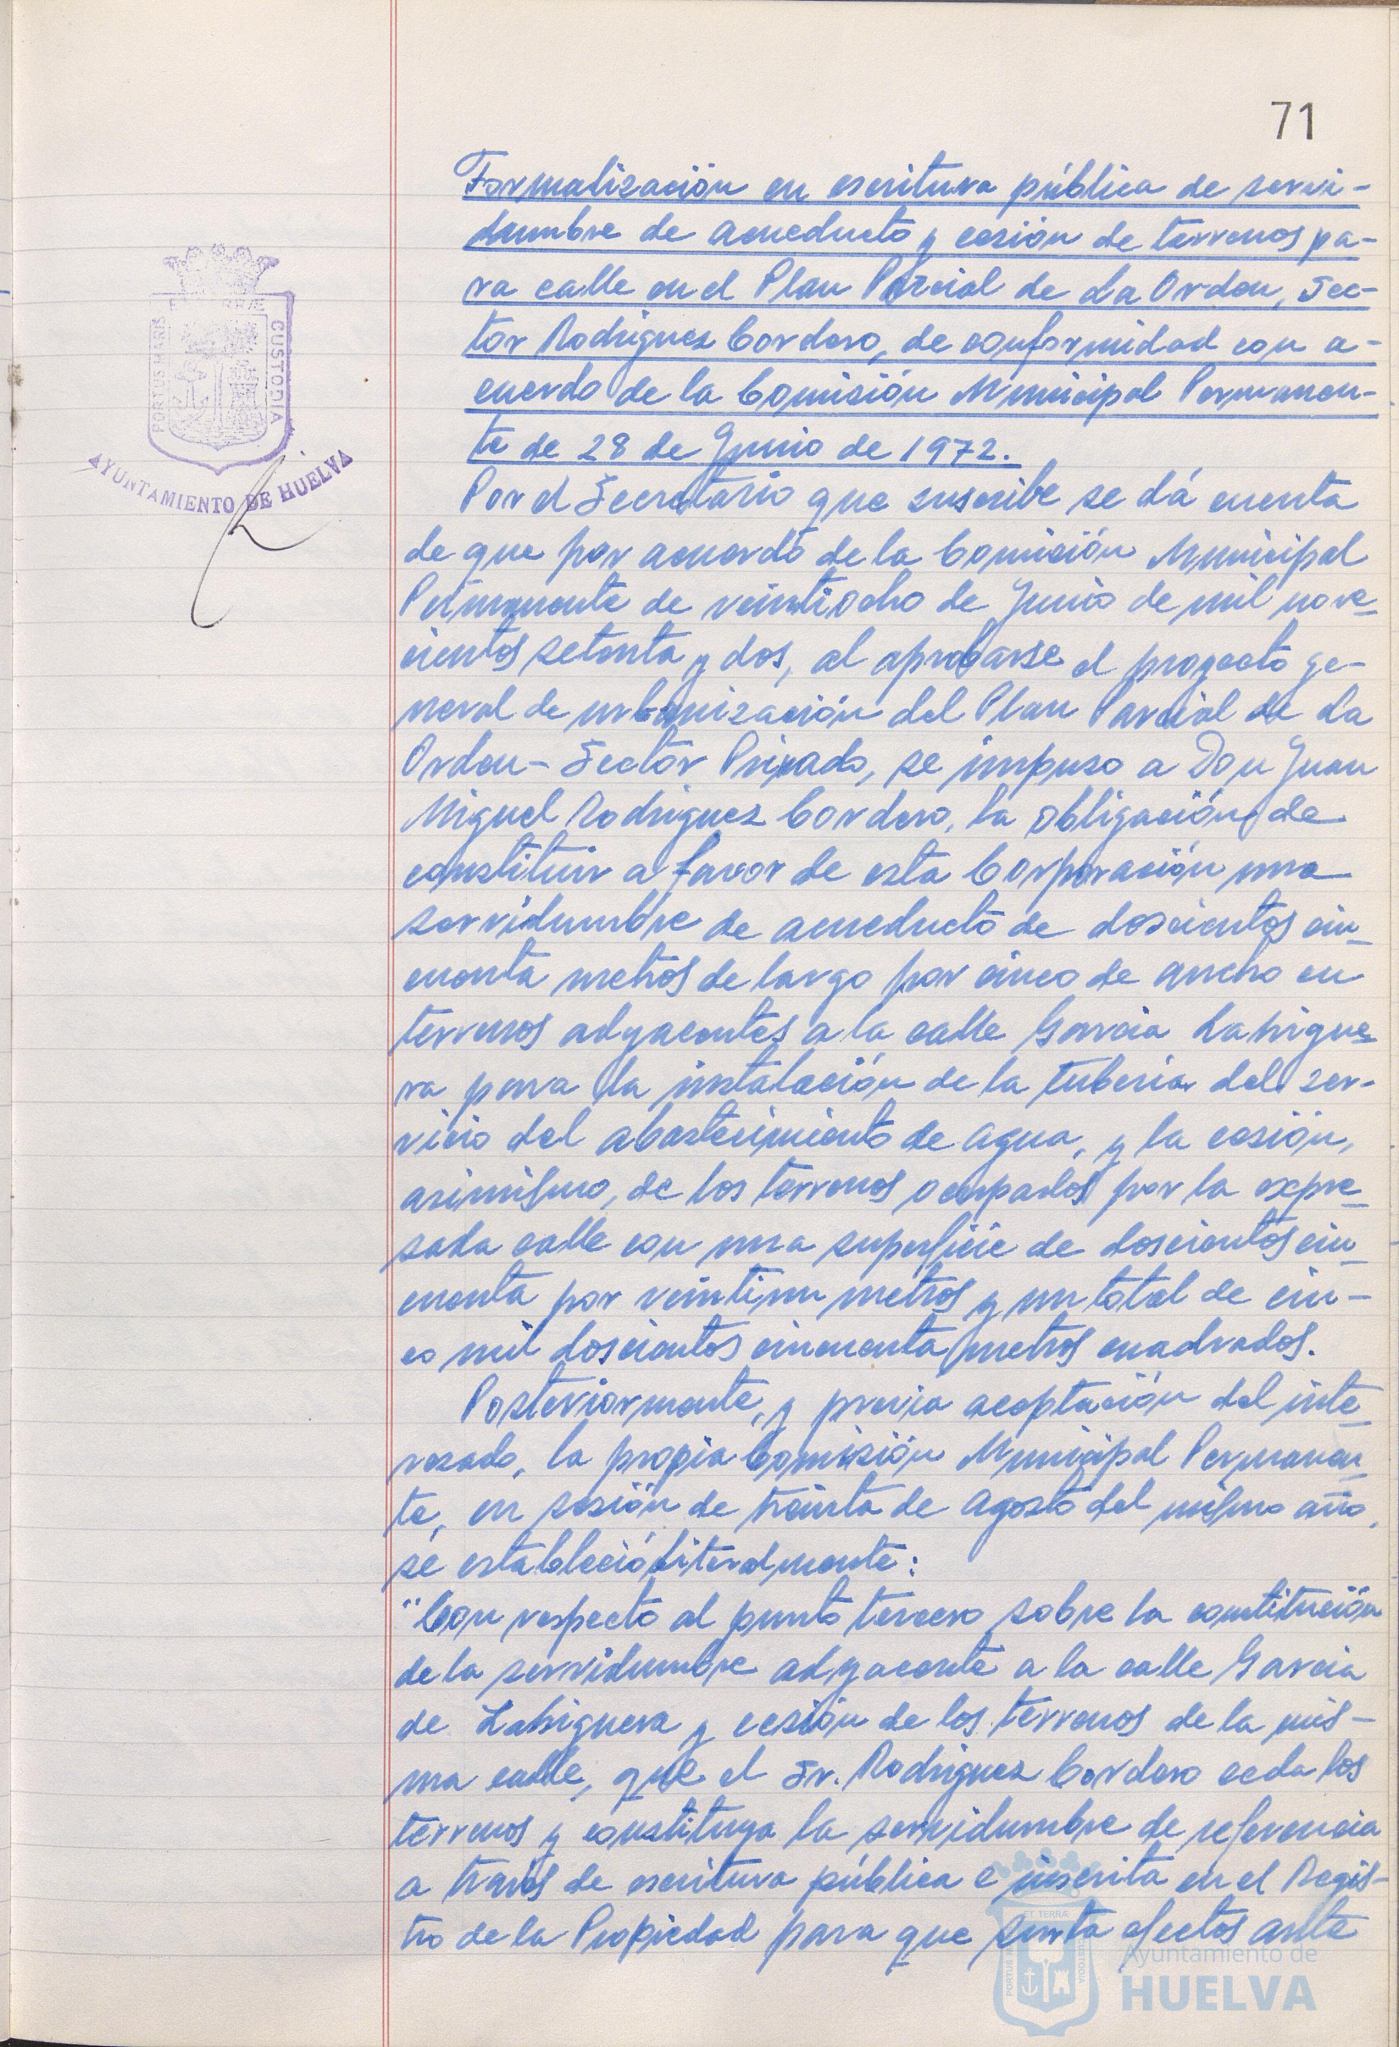 71
Formalización en escritura pública de servi-
dumbre de acueducto y cesión de terrenos pa-
ra calle en el Plan Parcial de La Orden, Sec-
tor Rodriguez Cordero, de conformidad con a-
cuerdo de la Comisión Municipal Permanen-
te de 28 de Junio de 1972.
Por el Secretario que suscribe se dá cuenta
de que por acuerdo de la Comisión Municipal
Permanente de veintiocho de Junio de mil nove-
cientos setenta y dos, al aprobarse el proyecto ge-
neral de urbanización del Plan Parcial de La
Orden - Sector Privado, se impuso a Don Juan
Miguel Rodriguez Cordero, la obligación de
constituir a favor de esta Corporación una
servidumbre de acueducto de doscientos cin-
cuenta metros de largo por cinco de ancho en
terrenos adyacentes a la calle Garcia Lahigue-
ra para la instalación de la tuberia del ser-
vicio del abastecimiento de agua, y la cesión,
asimismo, de los terrenos ocupados por la expre-
sada calle con una superficie de doscientos cin-
cuenta por veintiun metros y un total de cin-
co mil doscientos cincuenta metros cuadrados.
Posteriormente, y previa aceptación del inte-
resado, la propia Comisión Municipal Permanen-
te, en sesión de treinta de Agosto del mismo año,
se estableció literalmente:
"Con respecto al punto tercero sobre la constitución
de la servidumbre adyacente a la calle Garcia
de Lahiguera y cesión de los terrenos de la mis-
ma calle, que el Sr. Rodriguez Cordero ceda los
terrenos y constituya la servidumbre de referencia
a través de escritura pública e inscrita en el Regis-
tro de la Propiedad para que surta efectos ante
PORTUS MARIS ET TERRÆ CUSTODIA
AYUNTAMIENTO DE HUELVA
PORTUS MARIS ET TERRÆ CUSTODIA
Ayuntamiento de
HUELVA